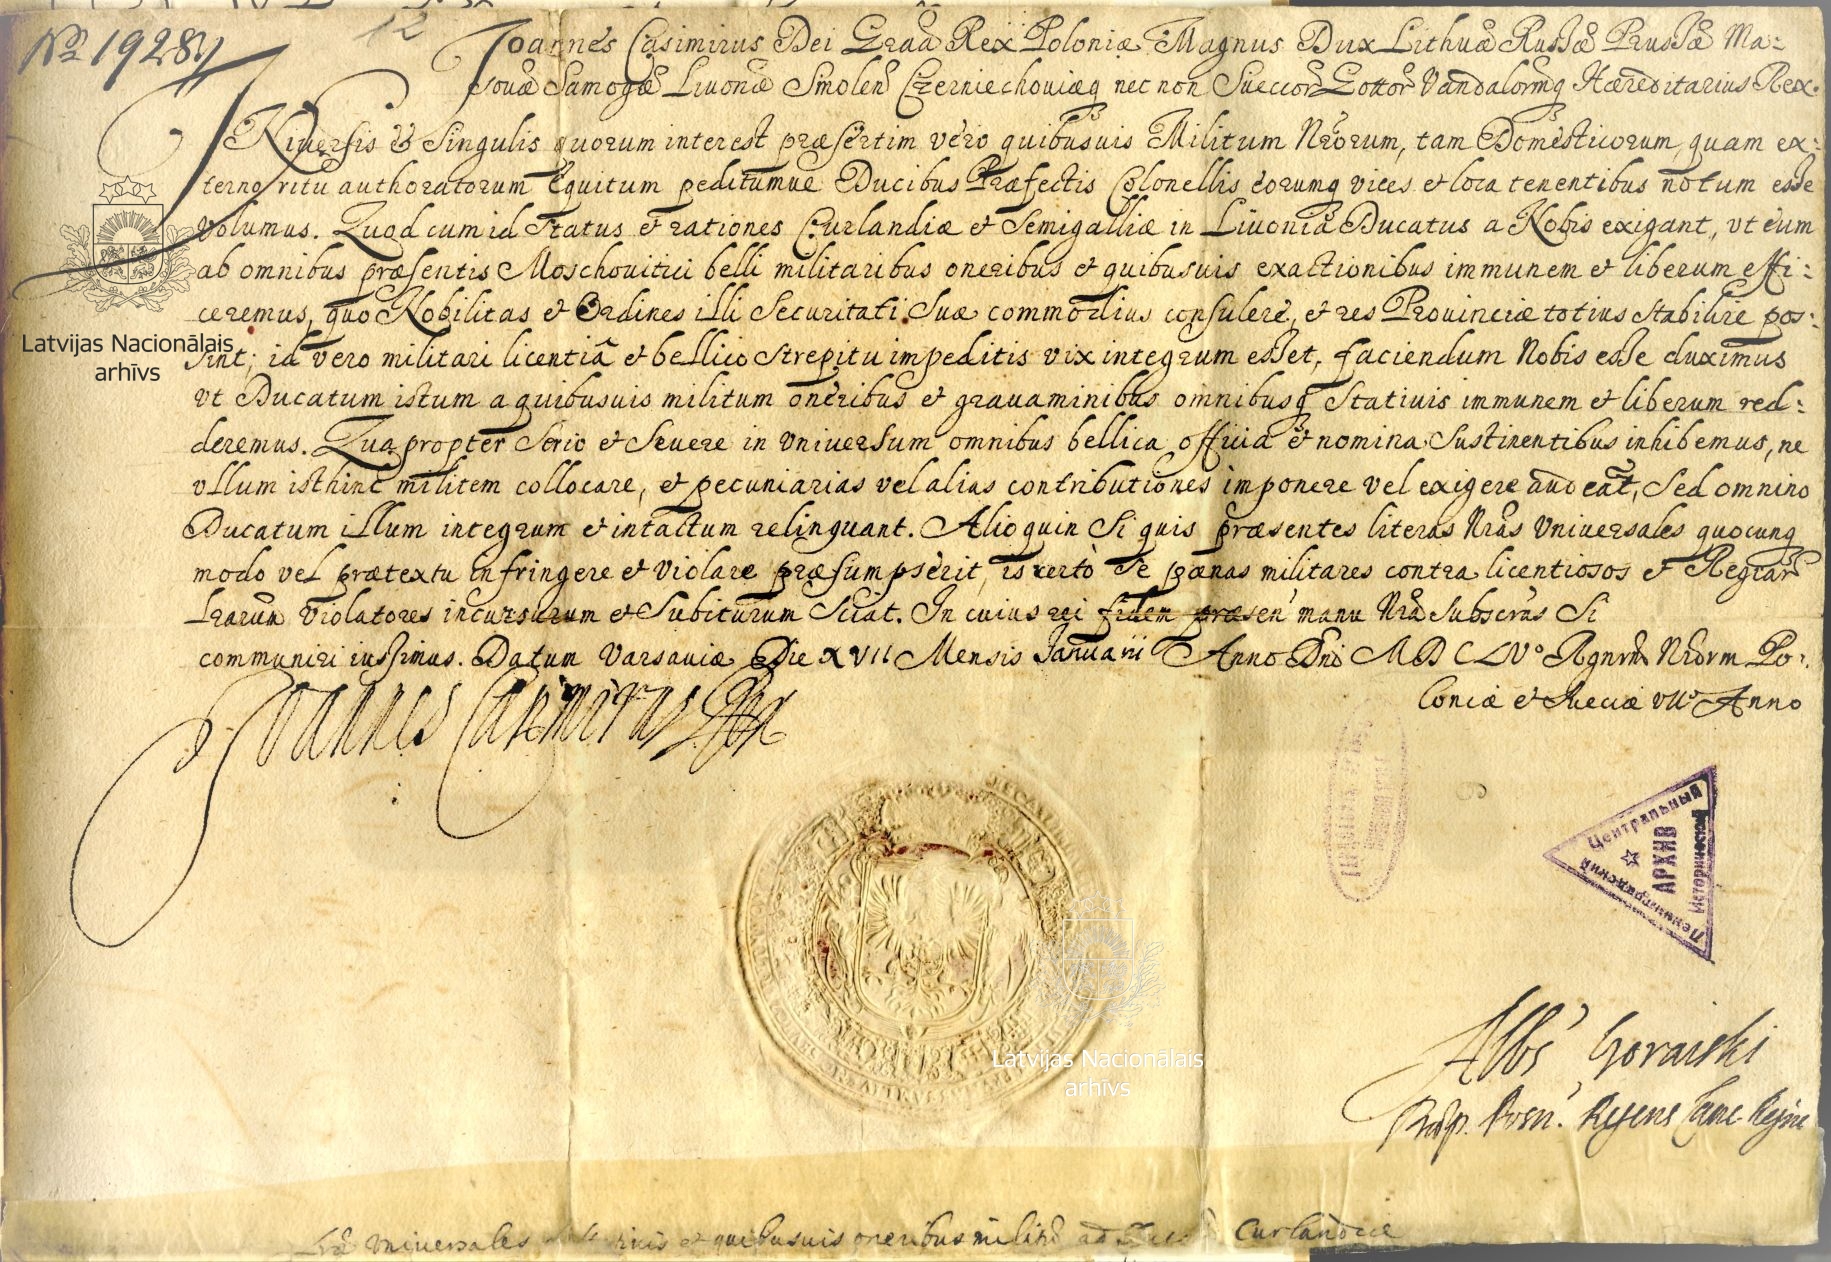 No 1928
12
Joannes Casimirus Dei Graã Rex Poloniæ Magnus Dux Lithuæ Russiæ Prussiæ Ma-
souæ Samogæ Liuoniæ Smolen Czerniechouiæq nec non Sueccor Gottor Vandalormq Hæreditarius Rex.
Vniuersis & Singulis quorum interest præsertim vero quibusuis Militum Nrorum, tam Domesticorum, quam ex-
terno ritu authoratorum Equitum peditumue Ducibus Præfectis Colonellis eorumq vices et loca tenentibus notum esse
volumus. Quod cum id status et rationes Curlandiæ et Semigalliæ in Liuoniâ Ducatus a Nobis exigant, vt eum
ab omnibus præsentis Moschouitici belli militaribus oneribus et quibusuis exactionibus immunem et liberum effi-
ceremus, quo Nobilitas et Ordines illi Securitati Suæ commodius consulere, et res Prouinciæ totius stabilire pos-
sint; id vero militari licentiâ et bellico strepitu impeditis vix integrum esset, faciendum Nobis esse duximus
vt Ducatum istum a quibusuis militum oneribus et grauaminibus omnibusq Statiuis immunem et liberum red-
deremus. Quapropter Serio et Seuere in vniuersum omnibus bellica officia et nomina Sustinentibus inhibemus, ne
vllum isthinc militem collocare, et pecuniarias vel alias contributiones imponere vel exigere audeat, Sed omnino
Ducatum illum integrum et intactum relinquant. Alioquin Si quis præsentes literas Nras Vniuersales quocunq
modo vel prætextu infringere et violare præsumpserit, is certò Se pœnas militares contra licentiosos et Regiar
Lrarum violatores incursurum et Subiturum Sciat. In cuius rei fidem præsen manu Nra Subscras Si
communiri iussimus. Datum Varsauiæ Die XVII Mensis Januarii Anno Dni MDCLVo Rgnrm Nrorm Po-
loniæ et Sueciæ VIIo Anno
Joannes Casimirus Rex
Центральный
Исторический
АРХИВ
Ленинградский
Albs Goraiski
Posn. Regens Canc. Regni
Lræ Vniuersales et quibusuis oneribus milit ad Curlandiæ
Latvijas Nacionālais
arhīvs
Latvijas Nacionālais
arhīvs